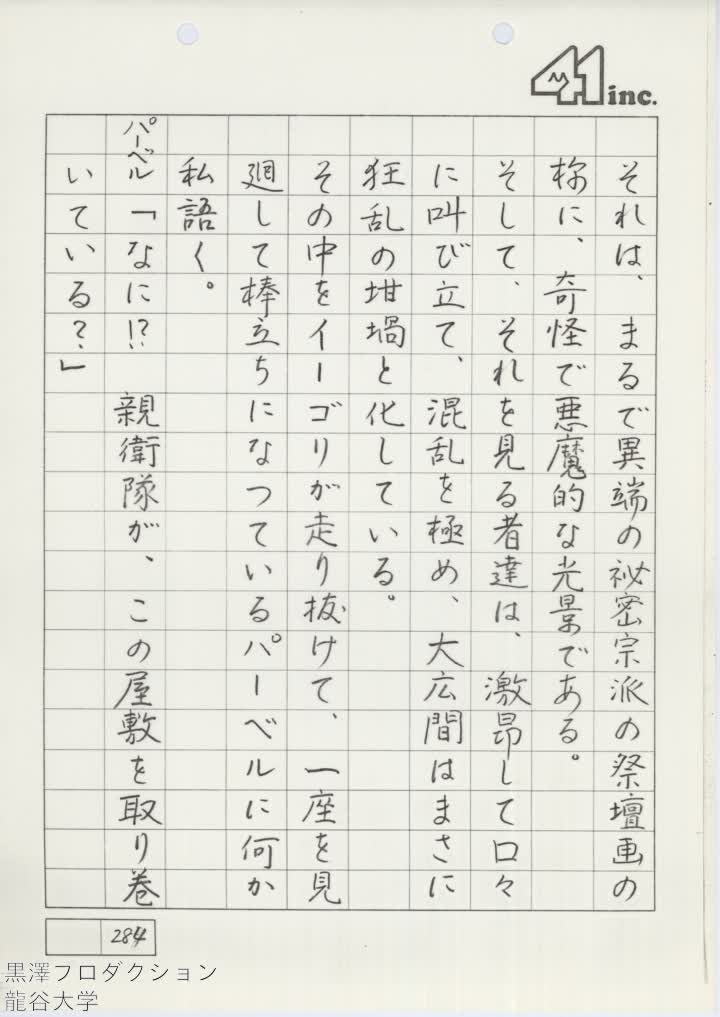 41 inc.
それは、まるで異端の祕密宗派の祭壇画の
様に、奇怪で悪魔的な光景である。
そして、それを見る者達は、激昂して口々
に叫び立て、混乱を極め、大広間はまさに
狂乱の坩堝と化している。
その中をイーゴリが走り抜けて、一座を見
廻して棒立ちになつているパーベルに何か
私語く。
パーベル「なに!?　親衛隊が、この屋敷を取り巻
いている？」
284
黒澤プロダクション
龍谷大学